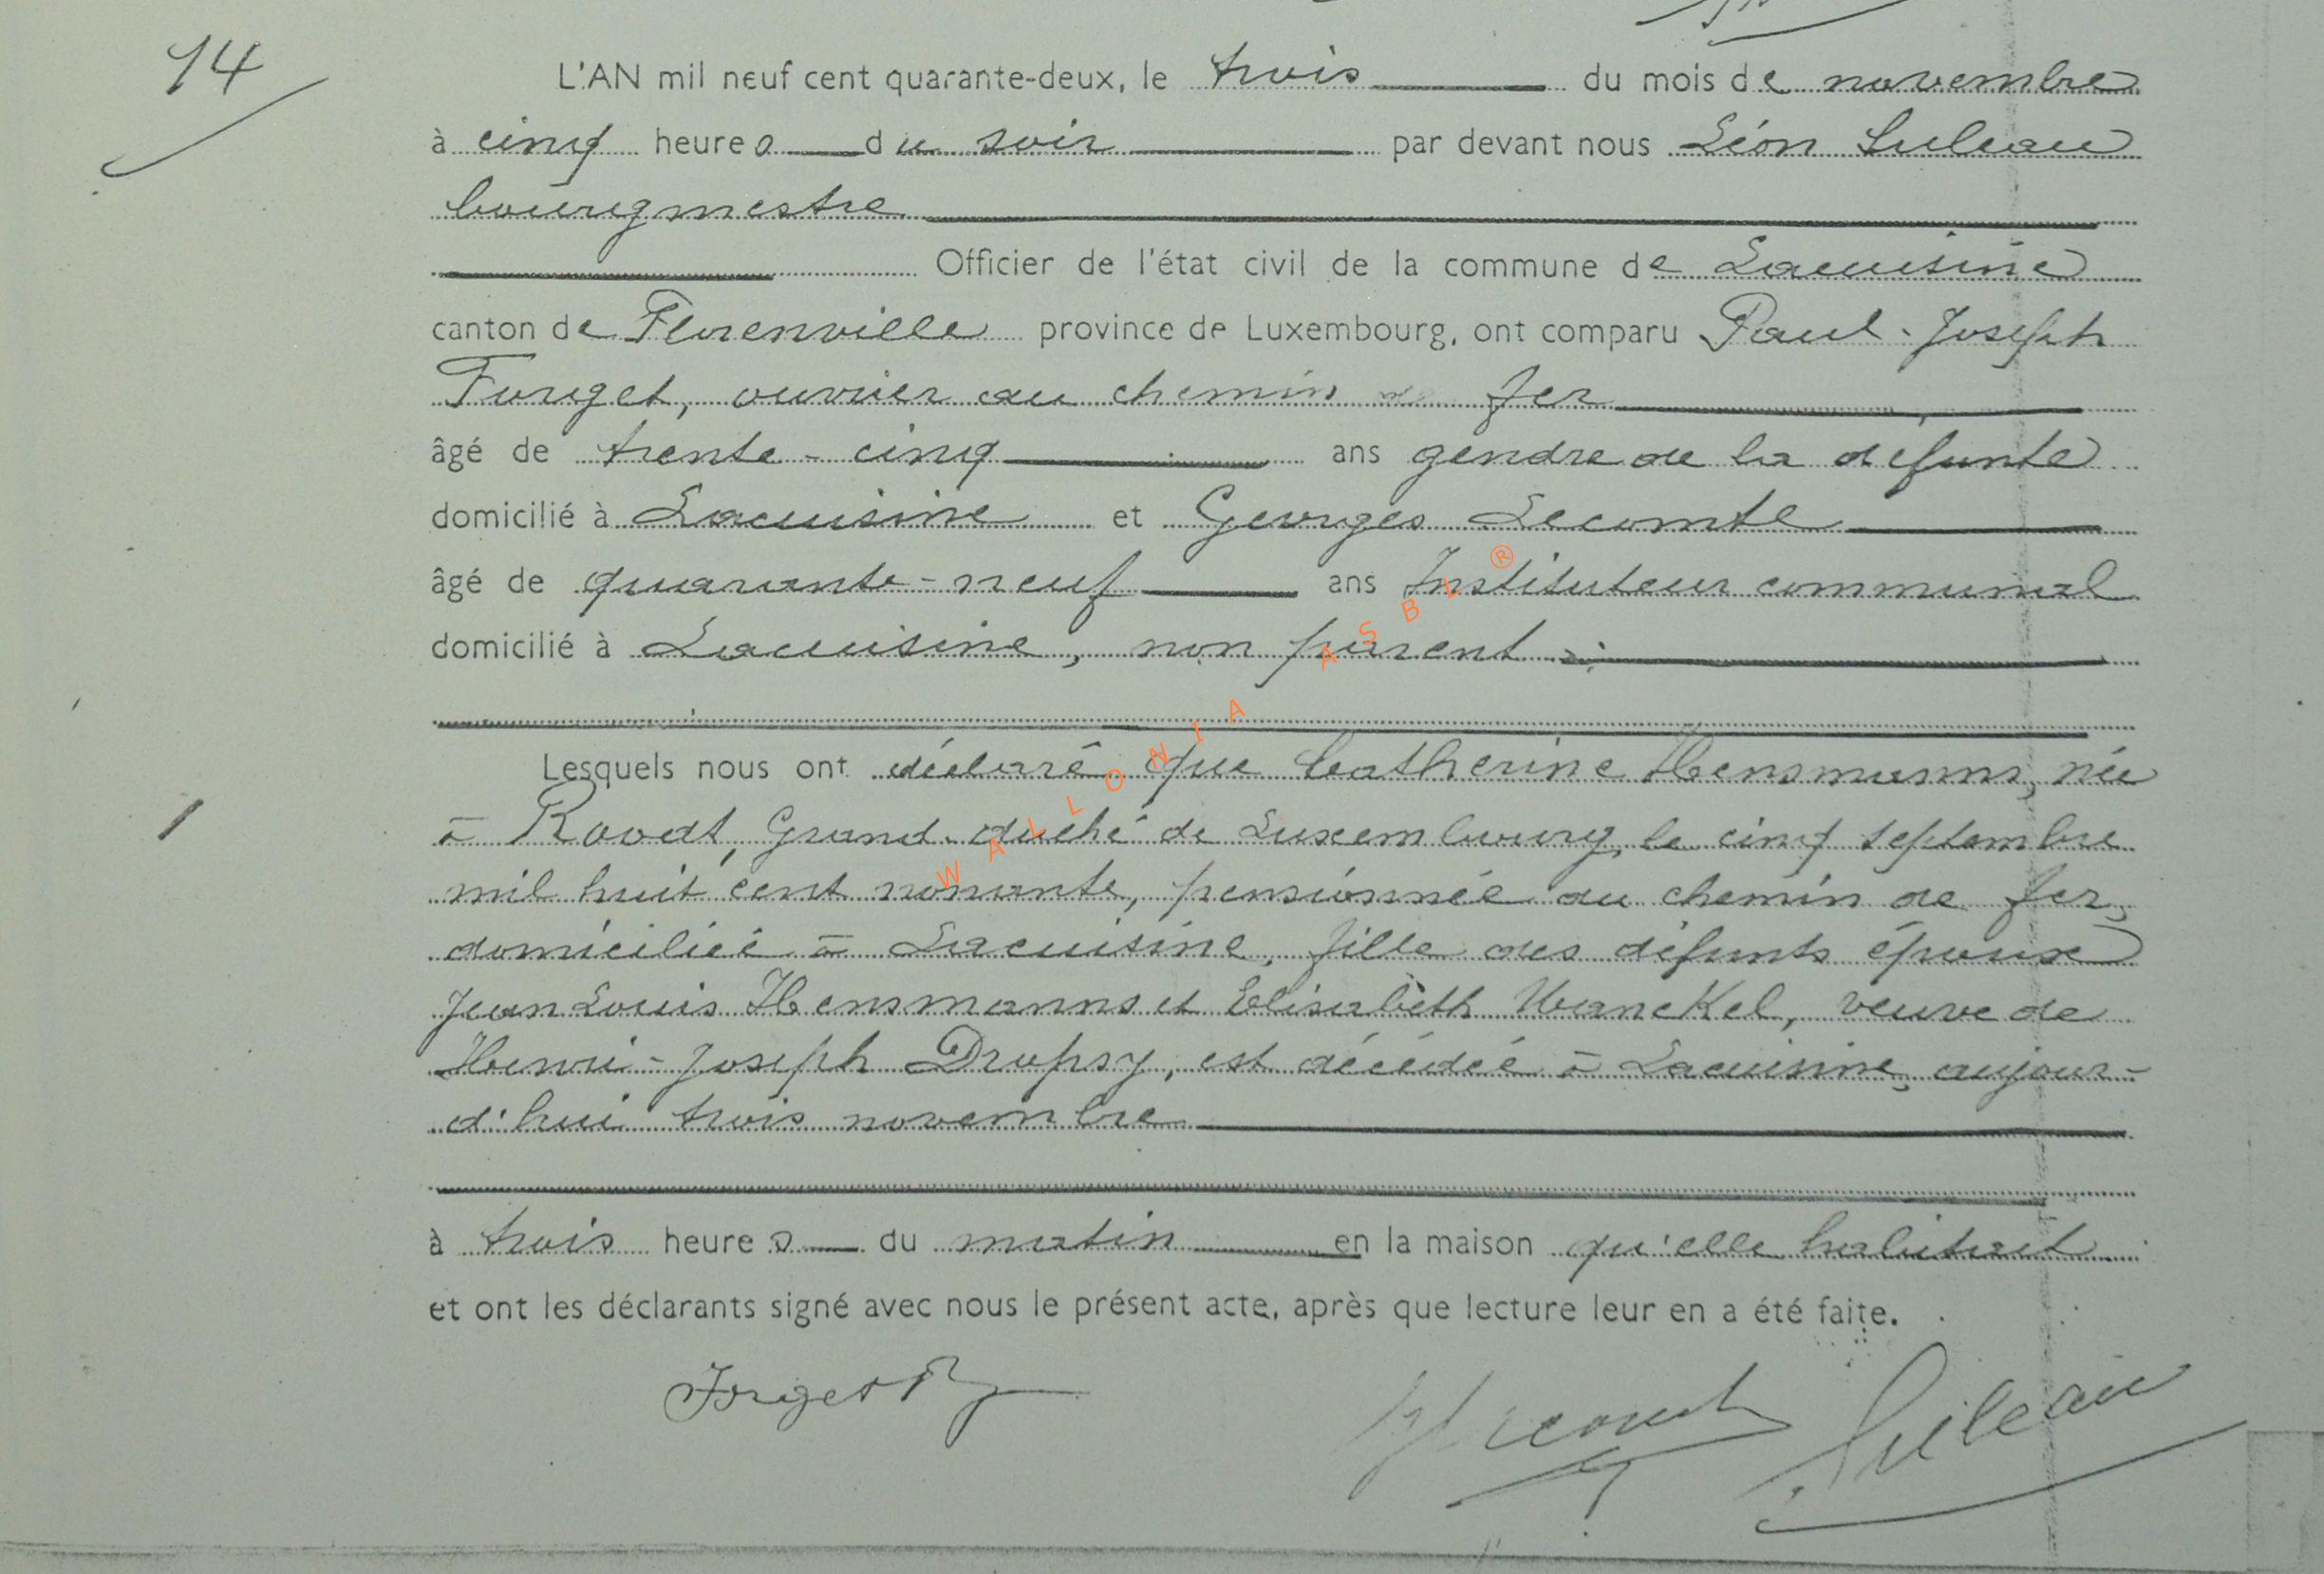 14
L'AN mil neuf cent quarante-deux, le trois du mois de novembre
à cinq heures du soir par devant nous Léon Suleau
bourgmestre
Officier de l'état civil de la commune de Lacuisine
canton de Florenville province de Luxembourg, ont comparu Paul-Joseph
Forget, ouvrier au chemin de fer
âgé de trente-cinq ans gendre de la défunte
domicilié à Lacuisine et Georges Lecomte
âgé de quarante-neuf ans Instituteur communal
domicilié à Lacuisine, non parent
Lesquels nous ont déclaré que Catherine Hensmanns, née
à Roodt, Grand-duché de Luxembourg, le cinq septembre
mil huit cent nonante, pensionnée au chemin de fer,
domiciliée à Lacuisine, fille des défunts époux
Jean Louis Hensmanns et Elisabeth Wanckel, veuve de
Henri-Joseph Dropsy, est décédée à Lacuisine, aujour-
d'hui trois novembre
à trois heures du matin en la maison qu'elle habitait
et ont les déclarants signé avec nous le présent acte, après que lecture leur en a été faite.
Forget Lecomte Suleau
WALLONIA ASBL ®